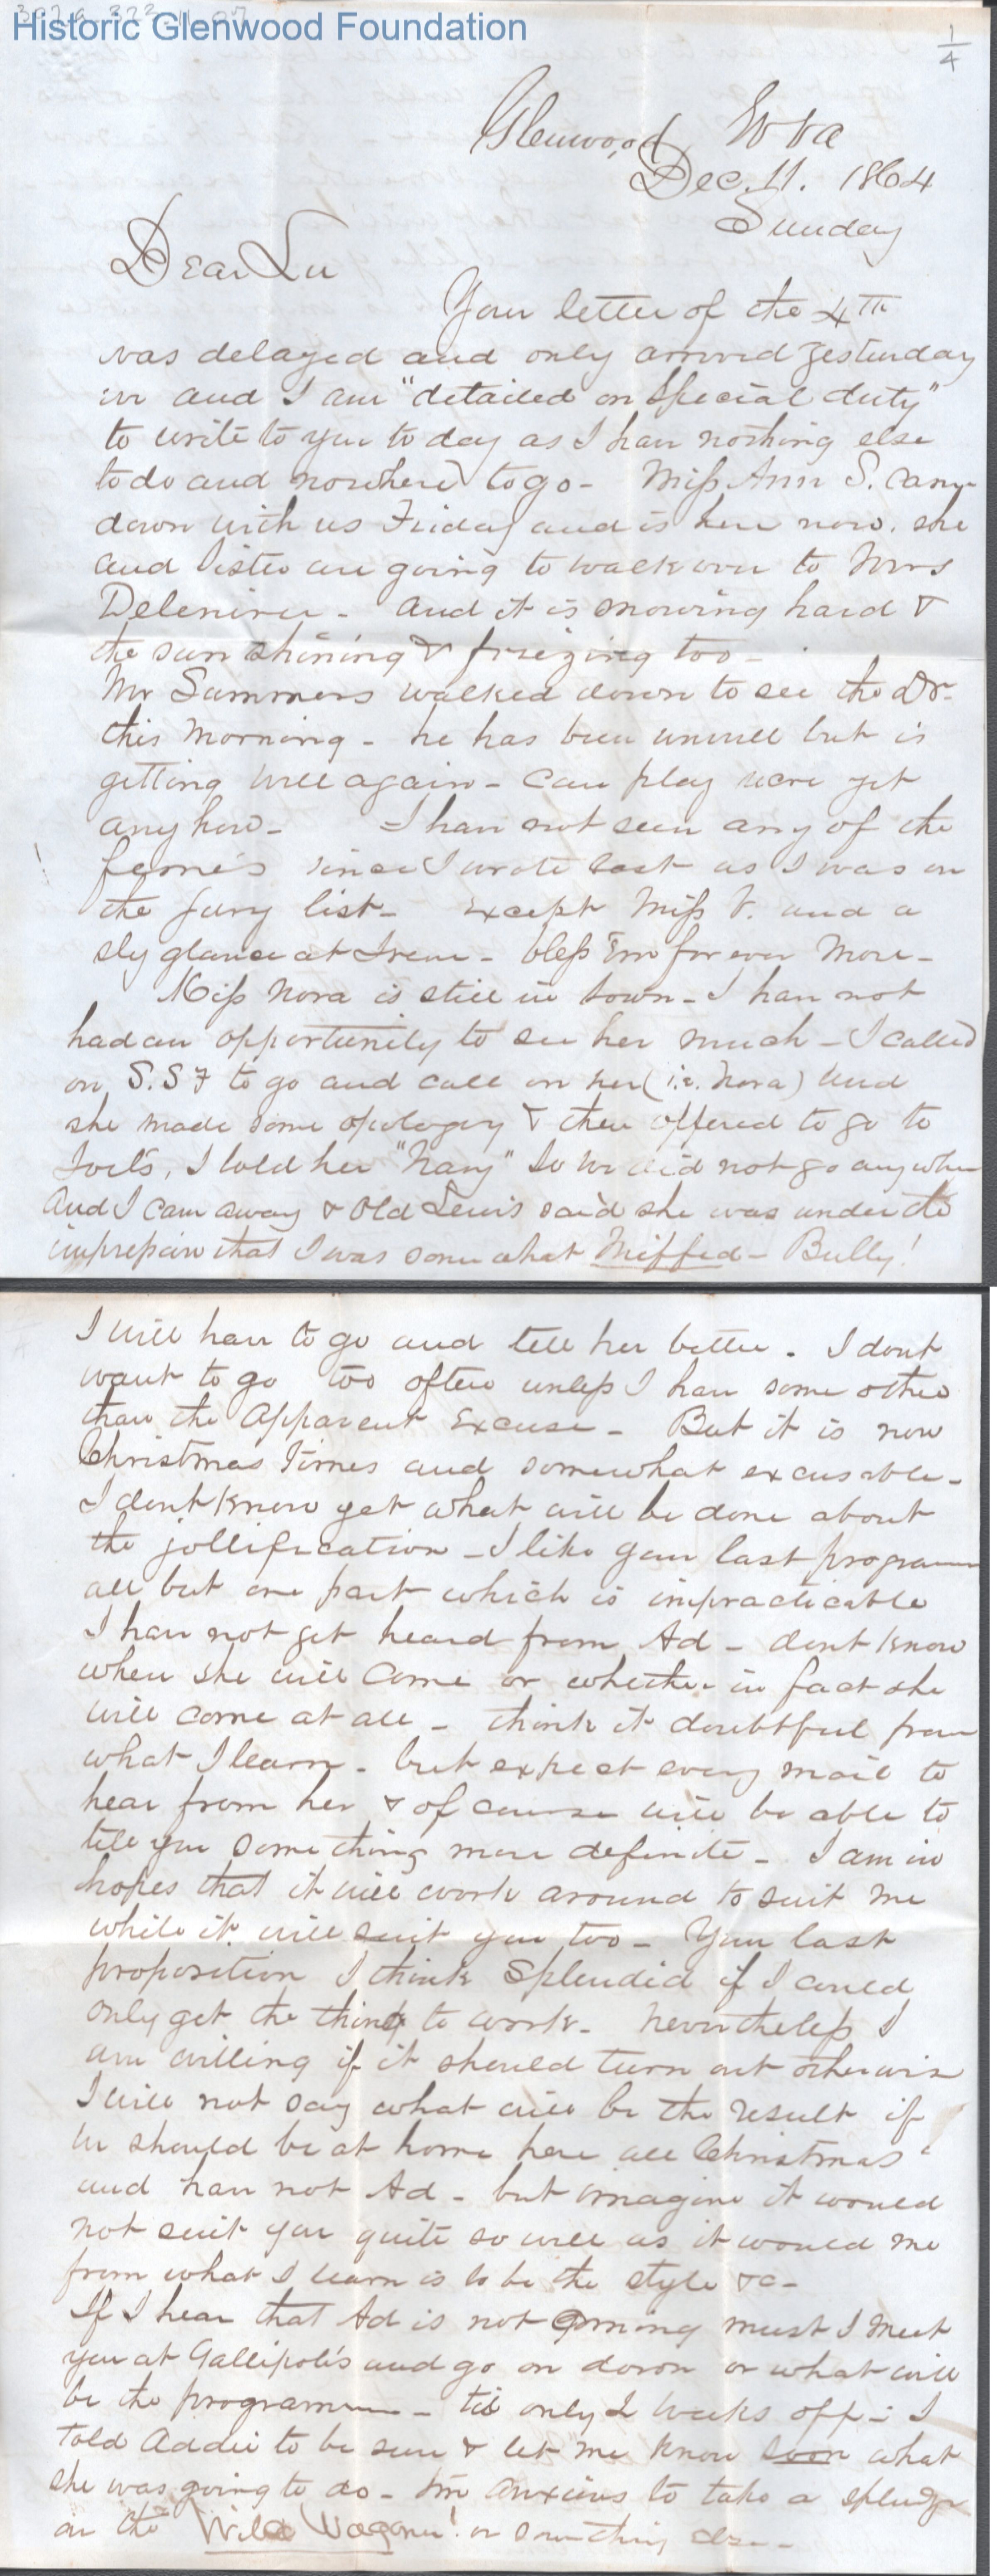 Historic Glenwood Foundation
1/4
Glenwood W Va
Dec. 11. 1864
Sunday
Dear Lu
Your letter of the 4TH
was delayed and only arrived yesterday
and I am "detailed on Special duty"
to write to you to day as I have nothing else
to do and nowhere to go - Miss Ann S. came
down with us Friday and is here now. she
and Sister are going to walk over to Mrs
and it is snowing hard &
the sun shining & friezing too -
Mr Summers walked down to see the Dr.
this morning - he has been unwell but is
getting well again - can play yet
any how - I have not seen any of the
feme's since I wrote last as I was on
the jury list - Except Miss V. and a
sly glance at Irene - bless 'em for ever more -
Miss Nora is still in town - I have not
had an opportunity to see her much - I called
on S.S F to go and call on her (i.e. Nora) and
she made some apology & then offered to go to
Joel's, I told her "Nary" so we did not go any where
and I came away & Old Lewis said she was under the
impression that I was somewhat Miffed - Bully!
I will have to go and tell her better. I dont
want to go too often unless I have some other
than the apparent Excuse - But it is now
Christmas Times and somewhat excusable -
I dont know yet what will be done about
the jollification - I like your last programme
all but one part which is impracticable
I have not yet heard from Ad - dont know
when she will come or whether in fact she
will come at all - think it doubtful from
what I learn - but expect every mail to
hear from her & of course will be able to
tell you something more definite - I am in
hopes that it will work around to suit me
while it will suit you too - Your last
proposition I think Splendid if I could
only get the thing to work - Nevertheless I
am willing if it should turn out otherwise
I will not say what will be the result if
we should be at home here all Christmas
and have not Ad - but imagine it would
not suit you quite so well as it would me
from what I learn is to be the style &c -
If I hear that Ad is not coming must I meet
you at Gallipolis and go on down or what will
be the programme - tis only 2 weeks off - I
told Addie to be sure & let me know soon what
she was going to do - I'm anxious to take a splurge
on the Wild Wagoner! or something else -